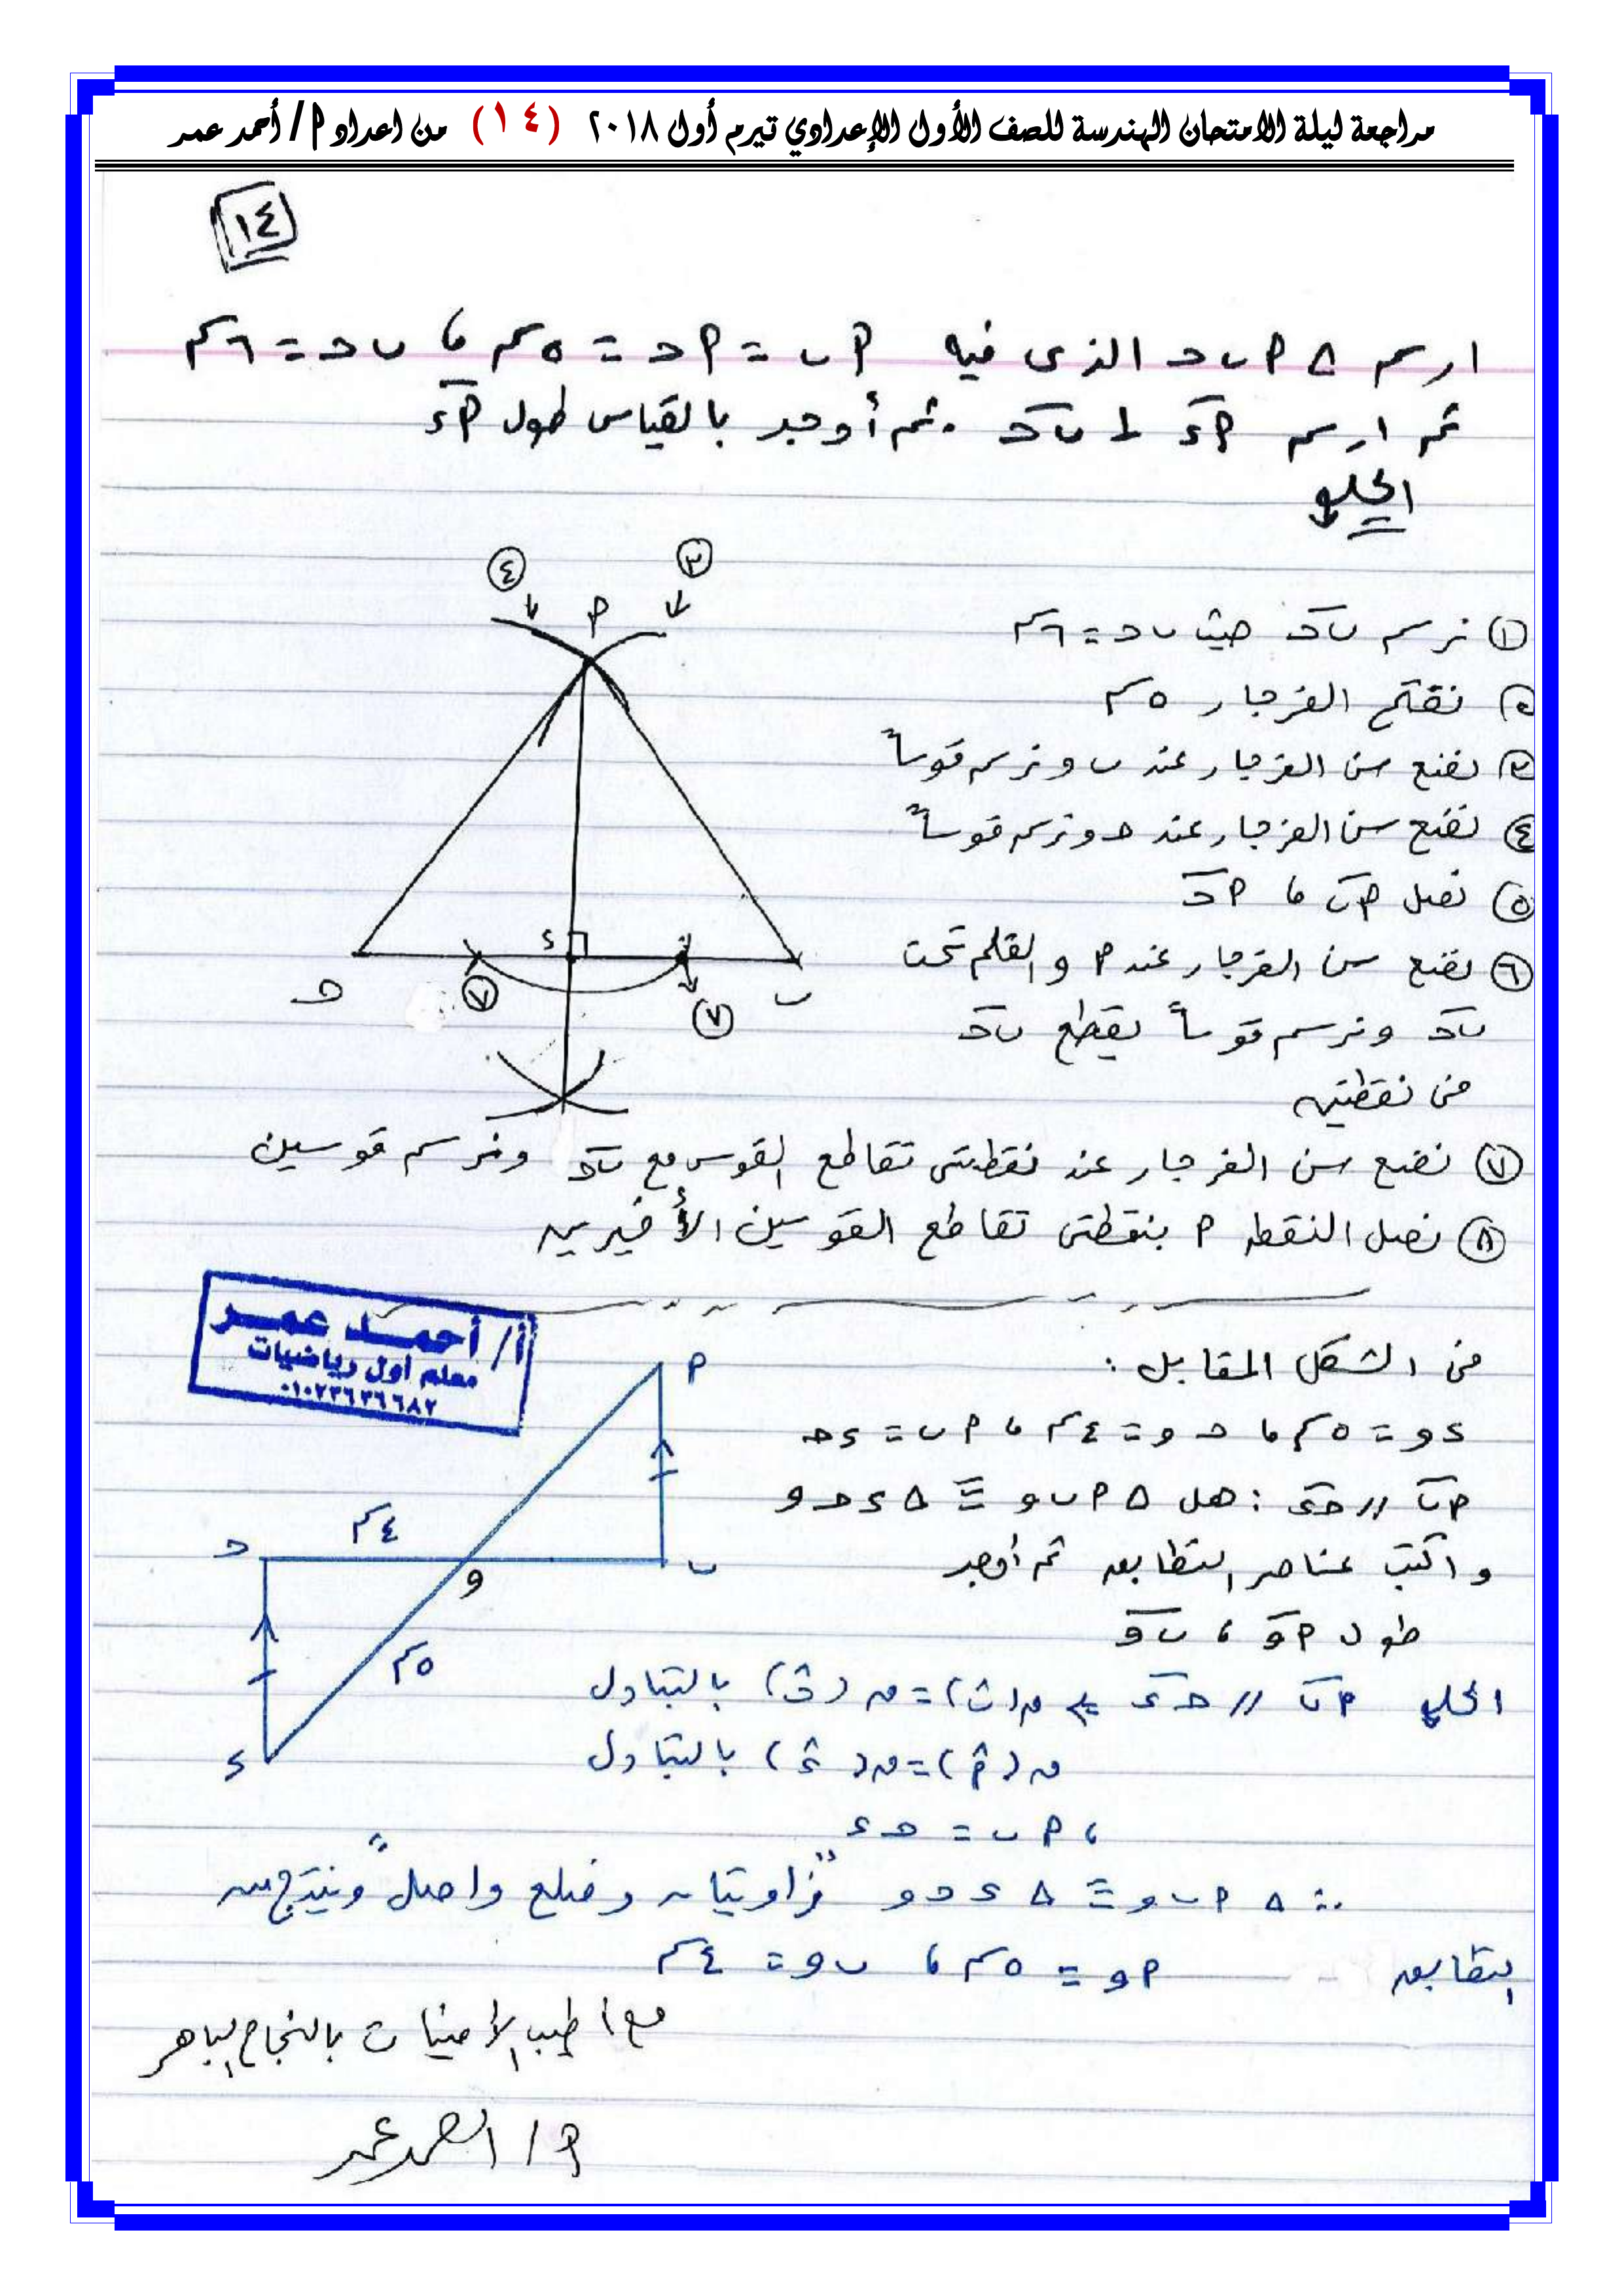 مراجعة ليلة الامتحان الهندسة للصف الأول الإعدادي تيرم أول ٢٠١٨ (١٤) من اعداد م/ أحمد عمر
١٤
ارسم △ م ب حـ الذى فيه م ب = م حـ = ٥ سم ، ب حـ = ٦ سم
ثم ارسم م ء ⊥ ب حـ ثم أوجد بالقياس طول م ء
الحل
① نرسم ب حـ حيث ب حـ = ٦ سم
② نفتح الفرجار ٥ سم
③ نضع سن الفرجار عند ب ونرسم قوساً
④ نضع سن الفرجار عند حـ ونرسم قوساً
⑤ نصل م ب ، م حـ
⑥ نضع سن الفرجار عند م والقلم تحت
ب حـ ونرسم قوساً يقطع ب حـ
فى نقطتين
⑦ نضع سن الفرجار عند نقطتى تقاطع القوس مع ب حـ ونرسم قوسين
⑧ نصل النقطه م بنقطتى تقاطع القوسين الأخيرين
④ م ③
حـ ⑦ ء ⑦ ب
أ/ أحمد عمر
معلم أول رياضيات
٠١٠٢٣٦٣٦٦٨٢
فى الشكل المقابل :
ء و = ٥ سم ، حـ و = ٤ سم ، م ب = ء حـ
م ب // حـ ء : هل △ م ب و ≡ △ ء حـ و
واكتب عناصر التطابق ثم أوجد
طول م و ، ب و
م
حـ ٤ سم و ب
٥ سم
ء
الحل م ب // حـ ء ⇐ ق(ب) = ق(حـ) بالتبادل
ق(م) = ق(ء) بالتبادل
، م ب = حـ ء
∴ △ م ب و ≡ △ ء حـ و "زاويتان وضلع واصل" وينتج من
التطابق م و = ٥ سم ، ب و = ٤ سم
مع أطيب الأمنيات بالنجاح الباهر
م/ أحمد عمر